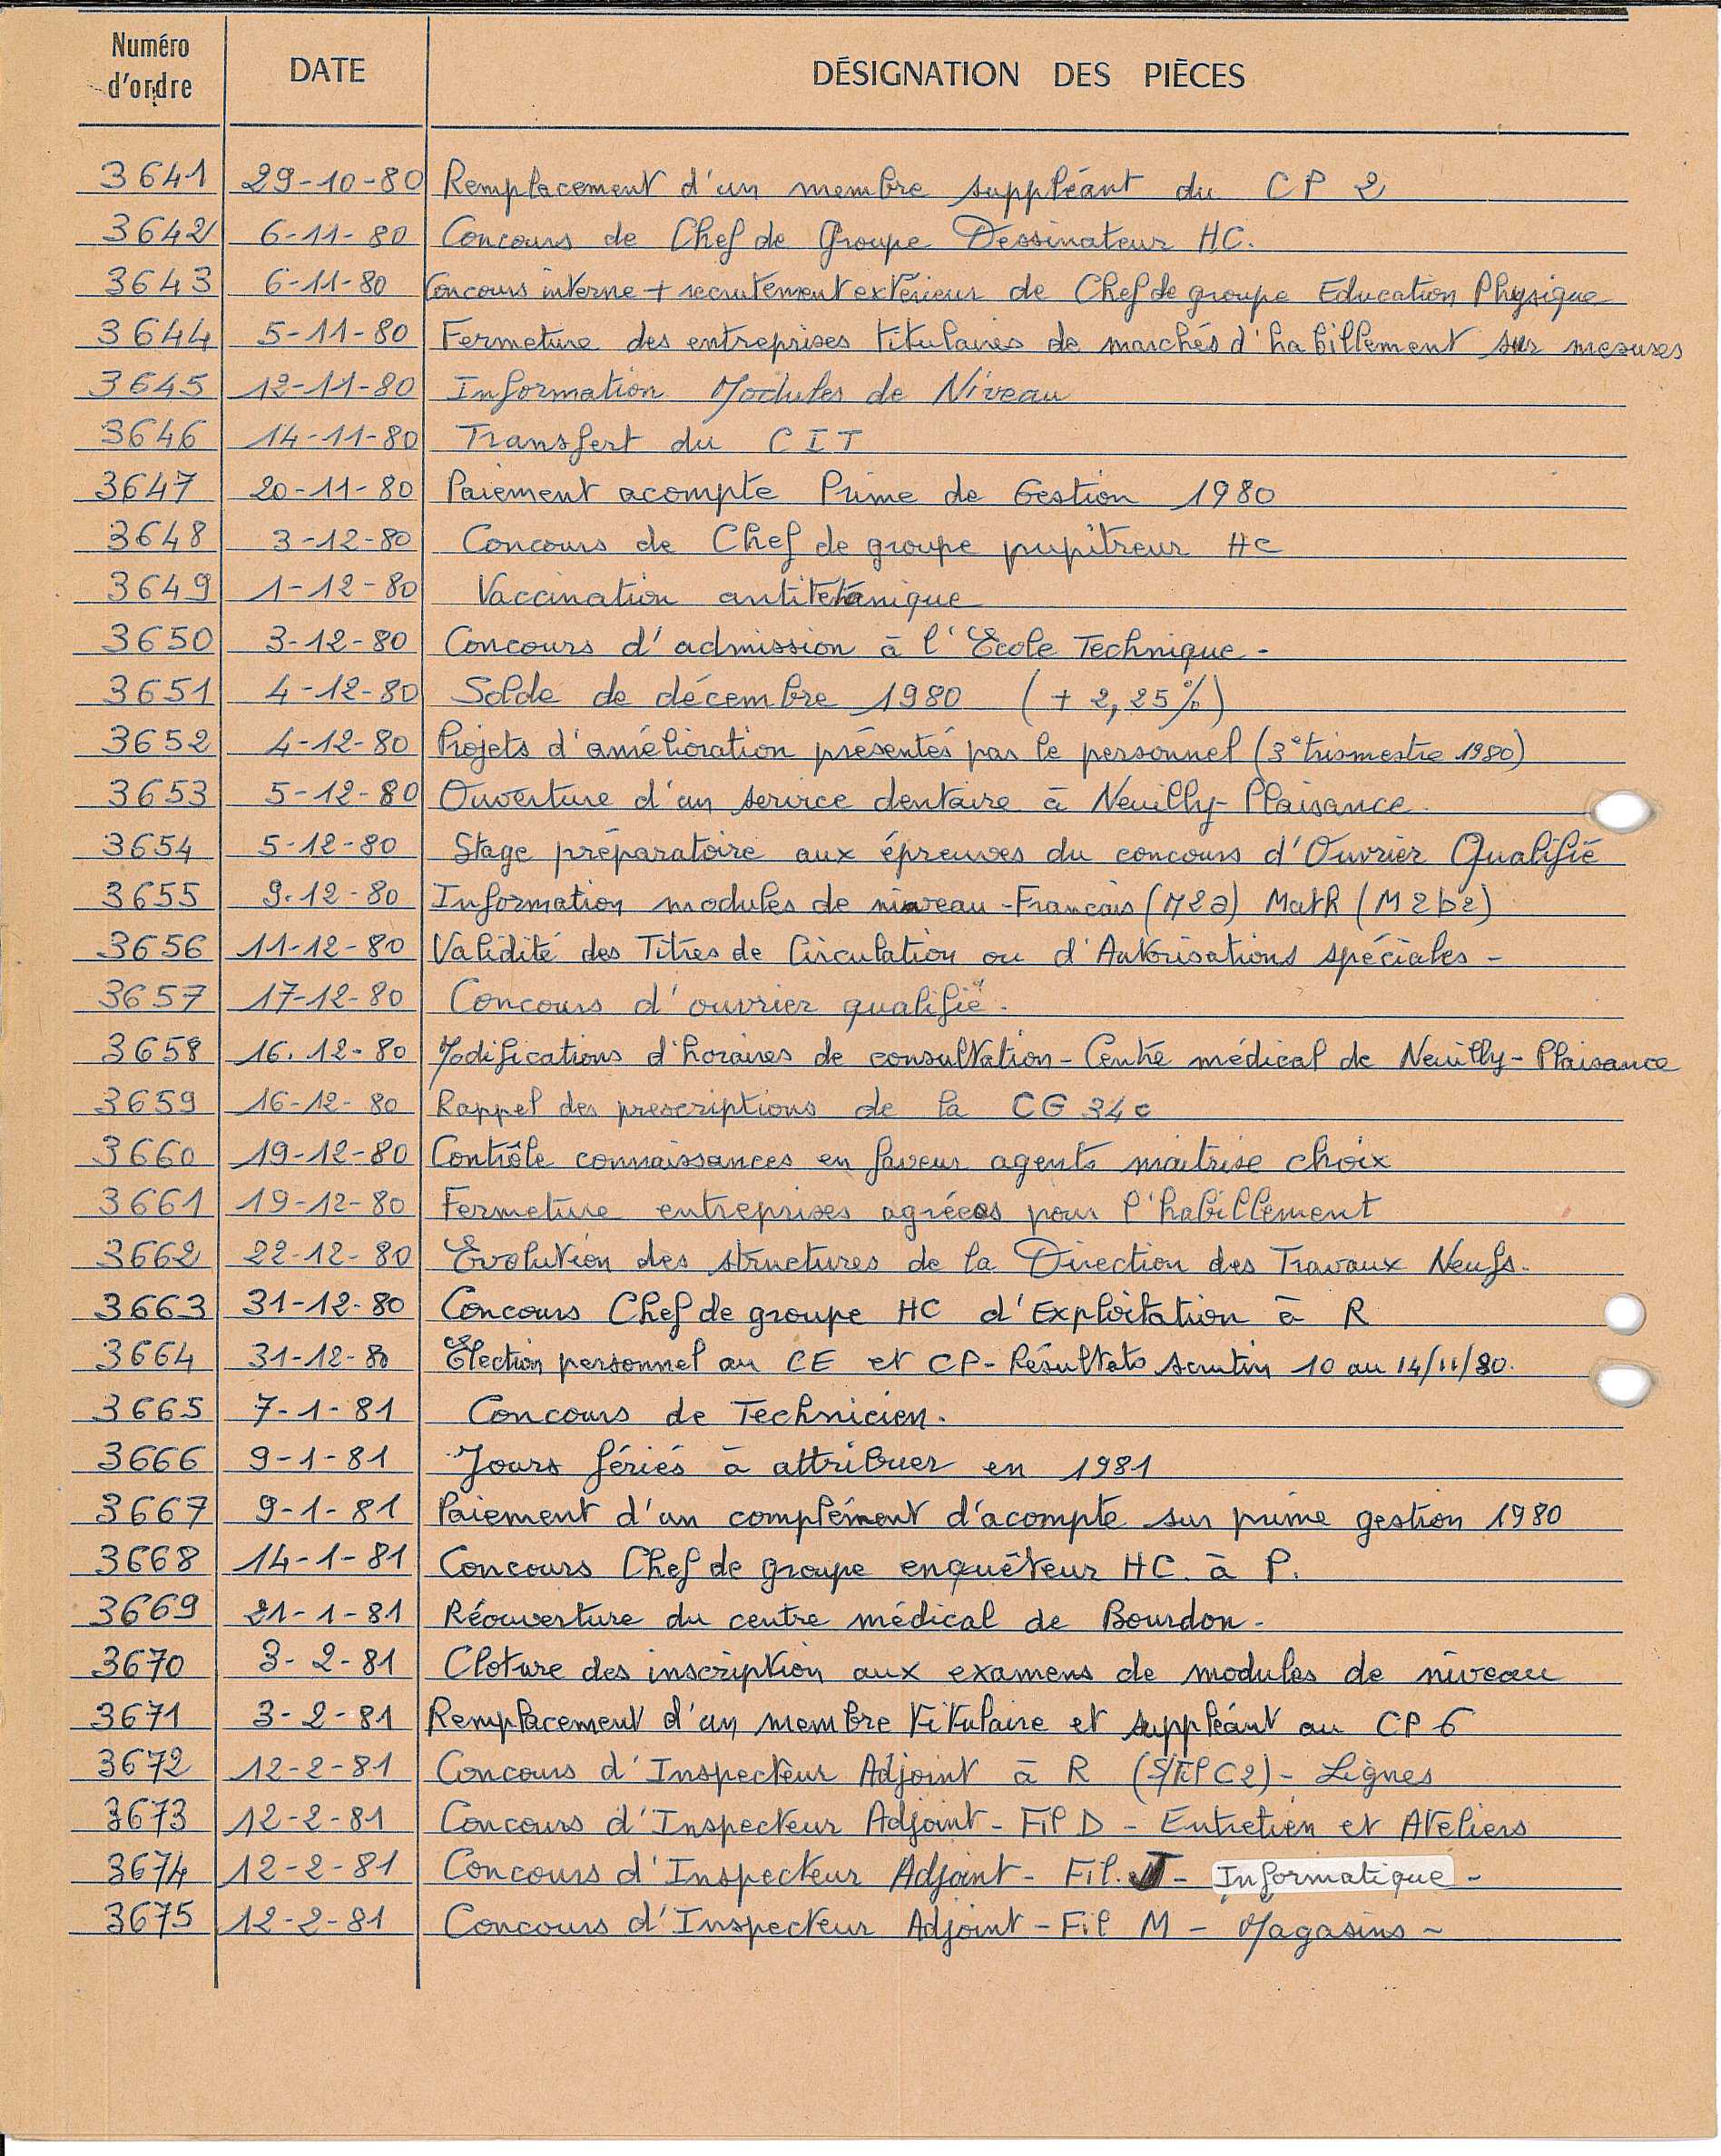 Numéro d'ordre DATE DÉSIGNATION DES PIÈCES
3641 29-10-80 Remplacement d'un membre suppléant du CP 2
3642 6-11-80 Concours de Chef de Groupe Dessinateur HC.
3643 6-11-80 Concours interne + recrutement extérieur de Chef de groupe Education Physique
3644 5-11-80 Fermeture des entreprises titulaires de marchés d'habillement sur mesures
3645 12-11-80 Information Modules de Niveau
3646 14-11-80 Transfert du CIT
3647 20-11-80 Paiement acompte Prime de Gestion 1980
3648 3-12-80 Concours de Chef de groupe pupitreur HC
3649 1-12-80 Vaccination antitétanique
3650 3-12-80 Concours d'admission à l'Ecole Technique -
3651 4-12-80 Solde de décembre 1980 (+ 2,25%)
3652 4-12-80 Projets d'amélioration présentés par le personnel (3e trismestre 1980)
3653 5-12-80 Ouverture d'un service dentaire à Neuilly-Plaisance.
3654 5-12-80 Stage préparatoire aux épreuves du concours d'Ouvrier Qualifié
3655 9.12-80 Information modules de niveau - Français (M2a) Math (M2b2)
3656 11-12-80 Validité des Titres de Circulation ou d'Autorisations spéciales -
3657 17-12-80 Concours d'ouvrier qualifié.
3658 16.12-80 Modifications d'horaires de consultation - Centre médical de Neuilly-Plaisance
3659 16-12-80 Rappel des prescriptions de la CG 34c
3660 19-12-80 Contrôle connaissances en faveur agents maitrise choix
3661 19-12-80 Fermeture entreprises agréées pour l'habillement
3662 22-12-80 Evolution des structures de la Direction des Travaux Neufs.
3663 31-12-80 Concours Chef de groupe HC d'Exploitation à R
3664 31-12-80 Election personnel au CE et CP - Résultats scrutin 10 au 14/11/80.
3665 7-1-81 Concours de Technicien.
3666 9-1-81 Jours fériés à attribuer en 1981
3667 9-1-81 Paiement d'un complément d'acompte sur prime gestion 1980
3668 14-1-81 Concours Chef de groupe enquêteur HC. à P.
3669 21-1-81 Réouverture du centre médical de Bourdon -
3670 3-2-81 Cloture des inscription aux examens de modules de niveau
3671 3-2-81 Remplacement d'un membre titulaire et suppléant au CP 6
3672 12-2-81 Concours d'Inspecteur Adjoint à R (S/Fil C2) - Lignes
3673 12-2-81 Concours d'Inspecteur Adjoint - Fil D - Entretien et Ateliers
3674 12-2-81 Concours d'Inspecteur Adjoint - Fil. J - Informatique -
3675 12-2-81 Concours d'Inspecteur Adjoint - Fil M - Magasins -